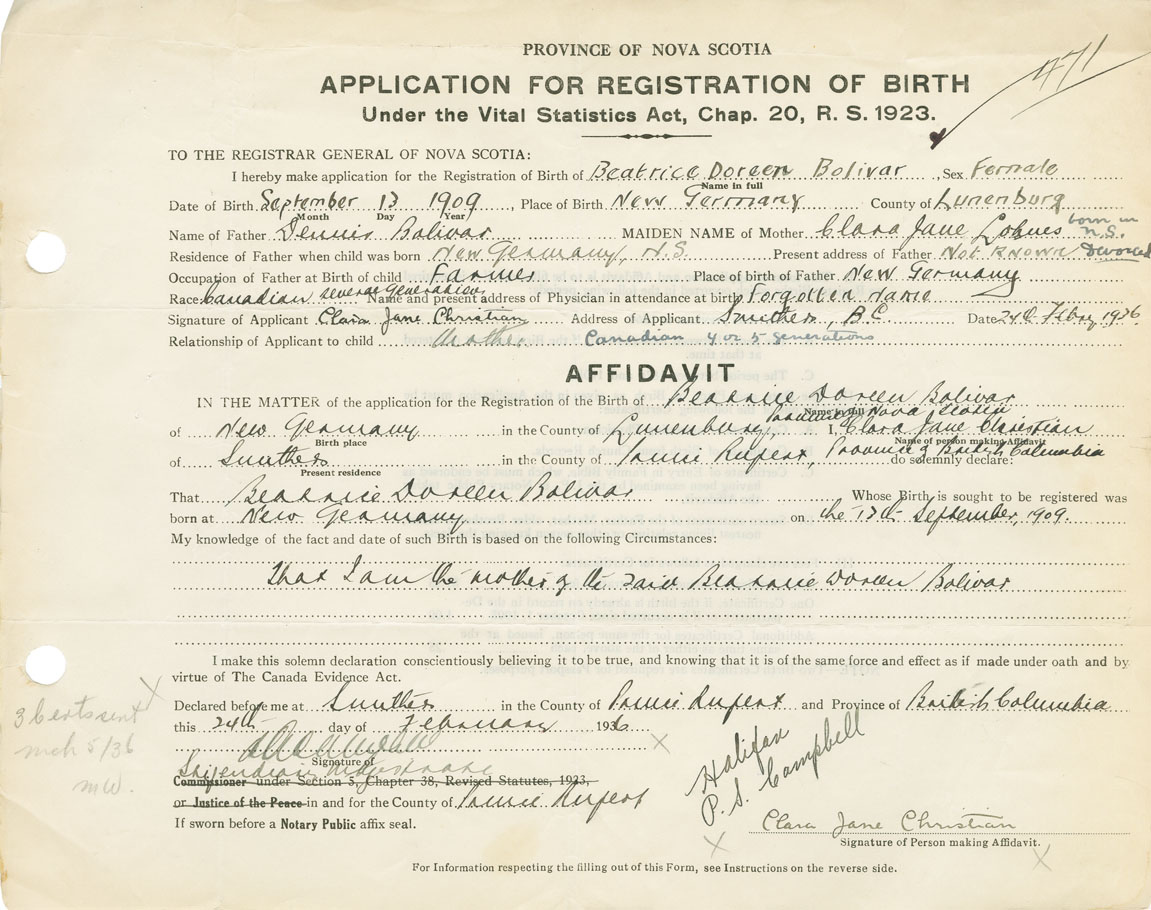 PROVINCE OF NOVA SCOTIA
471
APPLICATION FOR REGISTRATION OF BIRTH
Under the Vital Statistics Act, Chap. 20, R. S. 1923.
TO THE REGISTRAR GENERAL OF NOVA SCOTIA:
I hereby make application for the Registration of Birth of Beatrice Doreen Bolivar, Sex Female
Name in full
Date of Birth September 13 1909, Place of Birth New Germany County of Lunenburg
Month Day Year
born in N.S.
Name of Father Dennis Bolivar MAIDEN NAME of Mother Clara Jane
Residence of Father when child was born New Germany, N.S. Present address of Father Not Known Divorced
Occupation of Father at Birth of child Farmer Place of birth of Father New Germany
Race Canadian several generations Name and present address of Physician in attendance at birth Forgotten name
Signature of Applicant Clara Jane Christian Address of Applicant Smithers, B.C. Date 24th Febry 1936.
Relationship of Applicant to child Mother Canadian 4 or 5 generations
AFFIDAVIT
IN THE MATTER of the application for the Registration of the Birth of Beatrice Doreen Bolivar
Name in full
of New Germany in the County of Lunenburg, Province of Nova Scotia I, Clara Jane Christian
Birth place Name of person making Affidavit
of Smithers in the County of Prince Rupert, Province of British Columbia do solemnly declare:
Present residence
That Beatrice Doreen Bolivar Whose Birth is sought to be registered was
born at New Germany on the 13th September, 1909.
My knowledge of the fact and date of such Birth is based on the following Circumstances:
That I am the mother of the said Beatrice Doreen Bolivar
I make this solemn declaration conscientiously believing it to be true, and knowing that it is of the same force and effect as if made under oath and by
virtue of The Canada Evidence Act.
Declared before me at Smithers in the County of Prince Rupert and Province of British Columbia
this 24th day of February 1936
3 Certs sent
mch 5/36
mw.
Signature of
Stipendiary Magistrate
Commissioner under Section 5, Chapter 38, Revised Statutes, 1923,
or Justice of the Peace in and for the County of Prince Rupert
If sworn before a Notary Public affix seal.
Halifax
P. S. Campbell
Clara Jane Christian
Signature of Person making Affidavit.
For Information respecting the filling out of this Form, see Instructions on the reverse side.